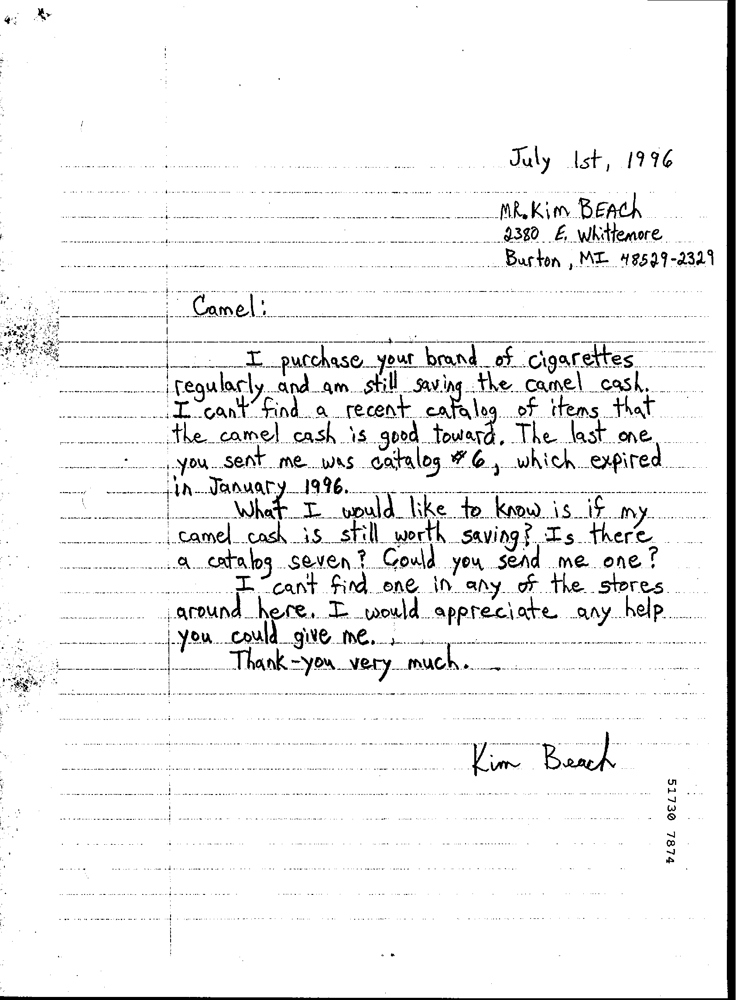 July 1st, 1996
MR. Kim BEACh
2380 E. Whittemore
Burton, MI 48529-2329
Camel:
I purchase your brand of cigarettes
regularly and am still saving the camel cash.
I can't find a recent catalog of items that
the camel cash is good toward. The last one
you sent me was catalog #6, which expired
in January 1996.
What I would like to know is if my
camel cash is still worth saving? Is there
a catalog seven? Could you send me one?
I can't find one in any of the stores
around here. I would appreciate any help
you could give me.
Thank-you very much.
Kim Beach
51730 7874